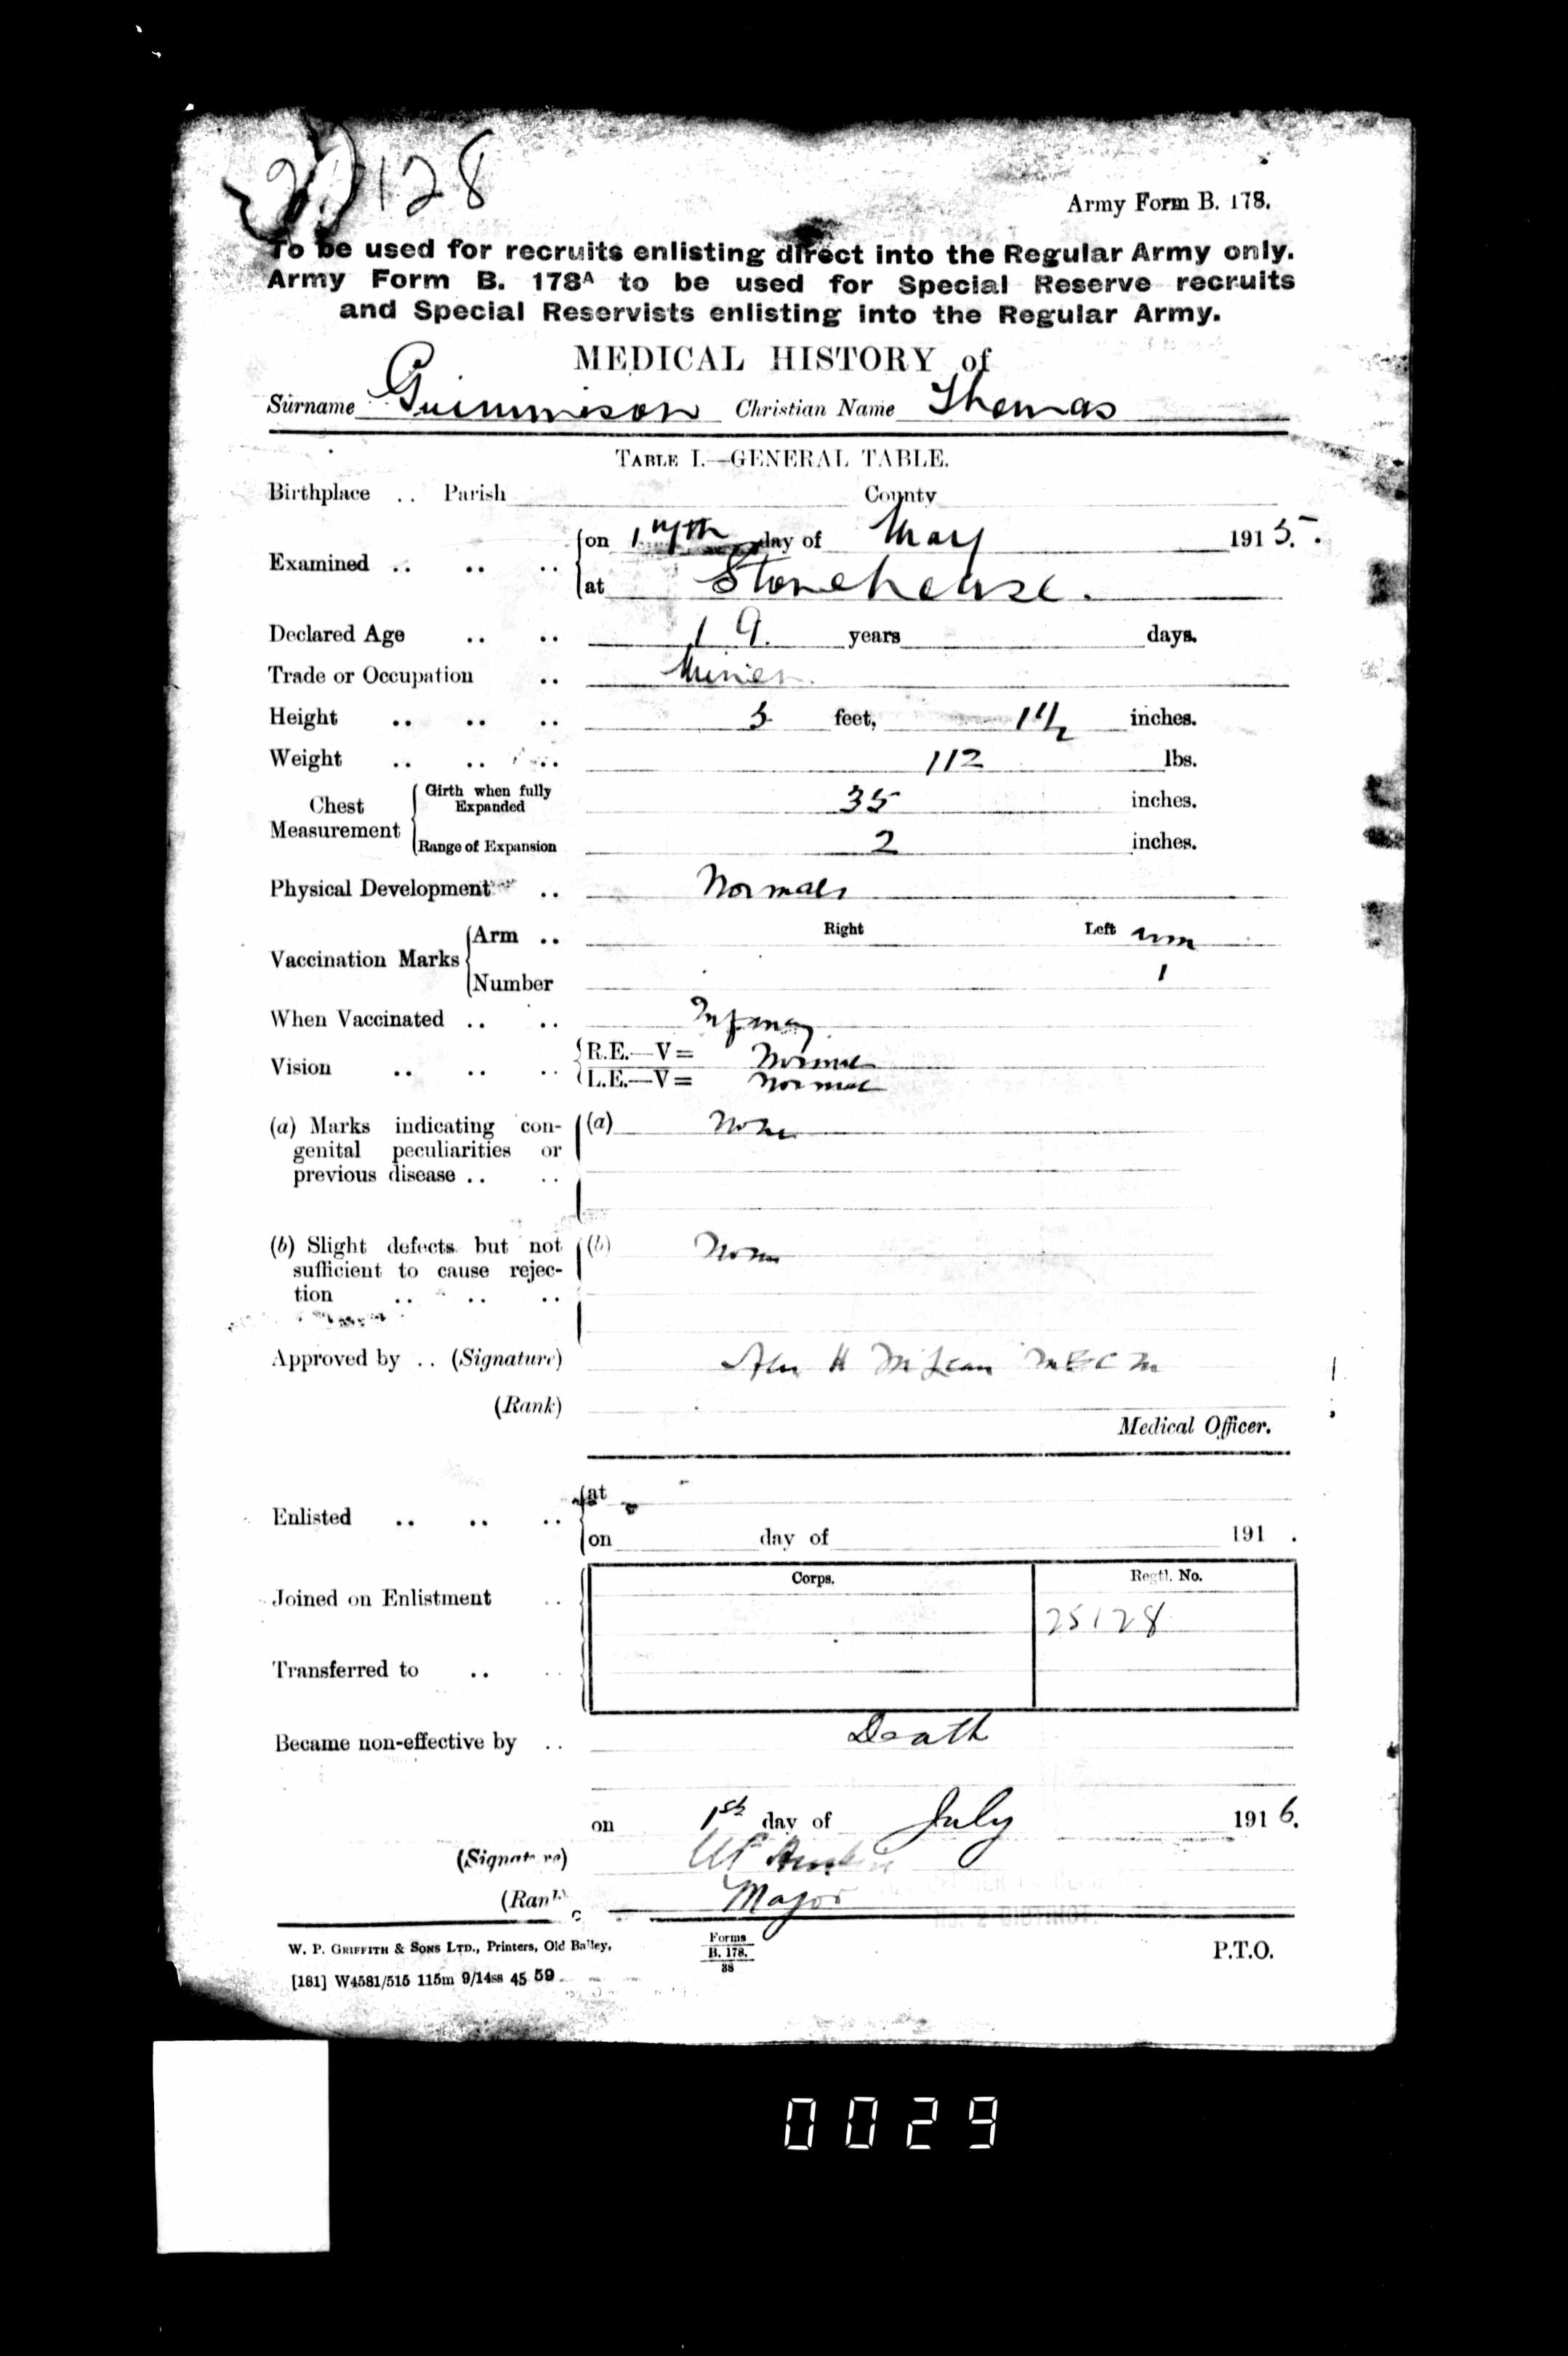 128
Army Form B. 178.
To be used for recruits enlisting direct into the Regular Army only.
Army Form B. 178A to be used for Special Reserve recruits
and Special Reservists enlisting into the Regular Army.
MEDICAL HISTORY of
Surname Guimmison Christian Name Thomas
TABLE I.—GENERAL TABLE.
Birthplace .. Parish County
Examined .. .. .. on 17th day of May 1915.
at Stonehouse.
Declared Age .. .. 19. years days.
Trade or Occupation .. Miner.
Height .. .. .. 5 feet, 1 1/2 inches.
Weight .. .. .. 112 lbs.
Chest Measurement Girth when fully Expanded 35 inches.
Range of Expansion 2 inches.
Physical Development .. Normal
Vaccination Marks Arm .. Right Left arm
Number 1
When Vaccinated .. .. Infancy
Vision .. .. .. R.E.—V= Normal
L.E.—V= Normal
(a) Marks indicating con- (a) None
genital peculiarities or
previous disease .. ..
(b) Slight defects but not (b) None
sufficient to cause rejec-
tion .. .. ..
Approved by .. (Signature) H McLean
(Rank)
Medical Officer.
Enlisted .. .. .. at
on day of 191 .
Corps. Regtl. No.
Joined on Enlistment .. 25128
Transferred to .. ..
Became non-effective by .. Death
on 1st day of July 1916.
(Signature)
(Rank) Major
W. P. GRIFFITH & SONS LTD., Printers, Old Bailey.
Forms
B. 178.
38
P.T.O.
[181] W4581/515 115m 9/14ss 45 59
0029